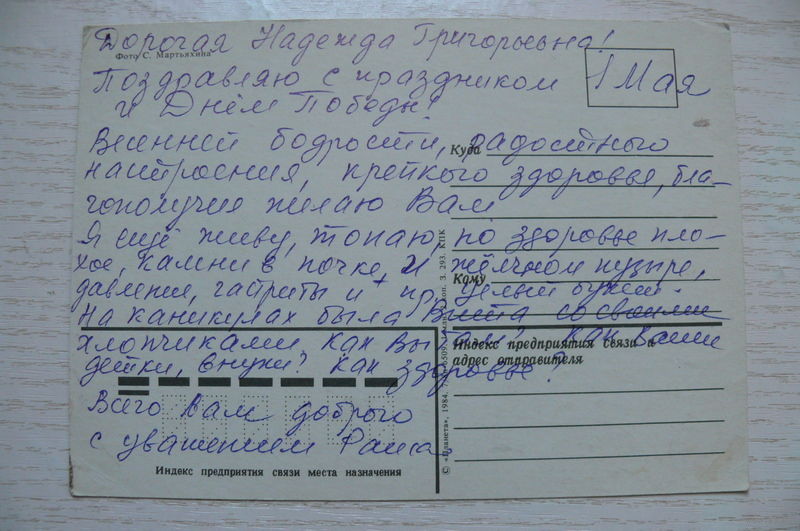 Дорогая Надежда Григорьевна!
Фото С. Мартьяхина
Поздравляю с праздником 1 Мая
и Днём Победы!
Весенней бодрости, радостного
настроения, крепкого здоровья, бла-
гополучия желаю Вам
Я ещё живу, топаю, но здоровье пло-
хое, камни в почке, и жёлчном пузыре,
давление, гастриты и + пр. целый букет.
На каникулах была Вита со своими
хлопчиками. Как Вы там? Как ваши
детки, внуки? Как здоровье?
Всего Вам доброго
с уважением Раиса
Куда
Кому
Индекс предприятия связи и
адрес отправителя
Индекс предприятия связи места назначения
© «Планета», 1984. З. 293. КПК